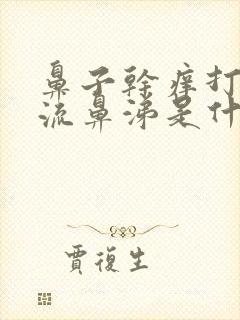 鼻子幹癢打
流鼻涕是什
賈復生